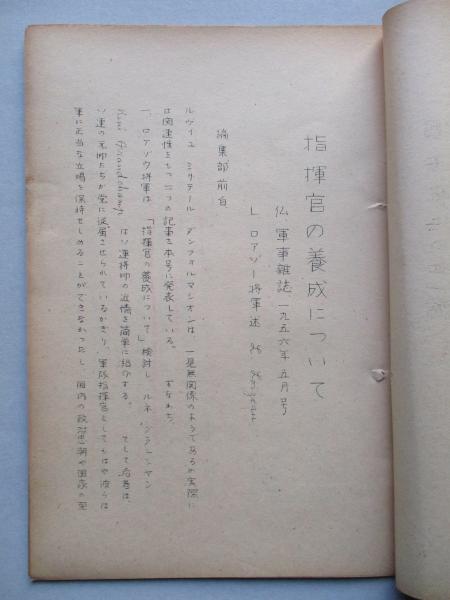 指揮官の養成について
仏、軍事雑誌一九五六年五月号
L ロアゾー将軍述
編集部前白
ルヴィユ ミリテール ダンフォルマシオンは、一見無関係のようであるが実際に
は関連性をもつ二つの記事を本号に発表している。 すなわち、
一、ロアゾウ将軍は、「指揮官の養成について」検討し、ルネ グランシャン
はソ連将帥の近情を簡単に紹介する。 そして后者は、
ソ連の元帥たちが党に従属させられているかぎり、軍隊指揮官としてもはや彼らは
軍に正当な立場を保持せしめることができなかったし、国内の政治思潮や国家の至